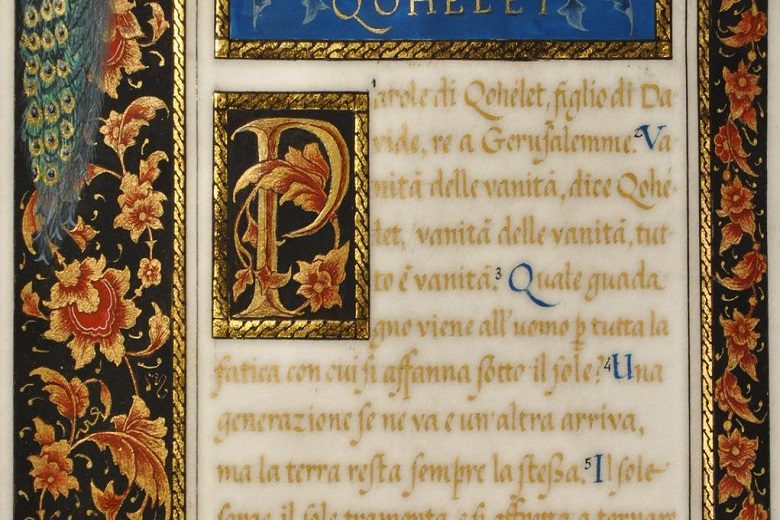 QOHELET
1
Parole di Qohélet, figlio di Da
vide, re a Gerusalemme. 2 Va
nità delle vanità, dice Qohé-
let, vanità delle vanità, tut-
to è vanità. 3 Quale guada
gno viene all'uomo p̲ tutta la
fatica con cui si affanna sotto il sole? 4 Una
generazione se ne va e un'altra arriva,
ma la terra resta sempre la stessa. 5 Il sole
sorge, il sole tramonta e si affretta a tornare